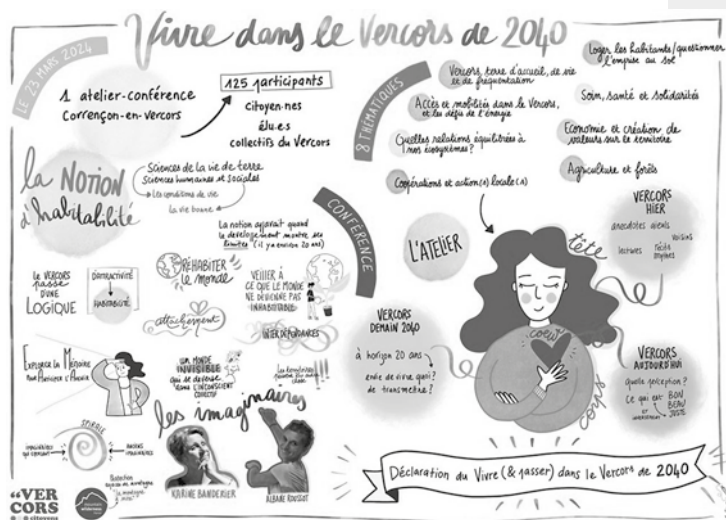 Vivre dans le Vercors de 2040
LE 23 MARS 2024
1 atelier-conférence
Corrençon-en-Vercors
125 participants
citoyen·nes
élu·e·s
collectifs du Vercors
8 THÉMATIQUES
Vercors, terre d'accueil, de vie
et de fréquentation
Accès et mobilités dans le Vercors,
et les défis de l'énergie
Quelles relations équilibrées à
nos écosystèmes?
Coopérations et action(s) locale(s)
Loger les habitants/questionner
l'emprise au sol
Soin, santé et solidarités
Economie et création de
valeurs sur le territoire
Agriculture et forêts
la NOTION
d'habitabilité
Sciences de la vie de terre
Sciences humaines et sociales
Les conditions de vie
La vie bonne
CONFÉRENCE
La notion apparait quand
le développement montre ses
limites (il y a environ 20 ans)
Le VERCORS
passe
D'UNE
LOGIQUE
D'ATTRACTIVITÉ
HABITABILITÉ
RÉHABITER
LE MONDE
attachement
VEILLER À
CE QUE LE MONDE
NE DEVIENNE PAS
INHABITABLE
INTERDÉPENDANCES
EXPLORER LA MÉMOIRE
POUR ANTICIPER L'AVENIR
UN MONDE
INVISIBLE
qui se déverse
dans L'INCONSCIENT
COLLECTIF
les imaginaires
SPIRALE
imaginaires
anciens
imaginaires
KARINE BANDERIER
ALBANE ROUSSOT
L'ATELIER
tête
coeur
corps
VERCORS
HIER
anecdotes
voisins
lectures
récits
mythes
VERCORS
DEMAIN 2040
à horizon 20 ans
envie de vivre quoi?
de transmettre?
VERCORS
AUJOURD'HUI
quelle perception?
Ce qui est BON
BEAU
JUSTE
Déclaration du Vivre (& passer) dans le Vercors de 2040
"VER
CORS
citoyens